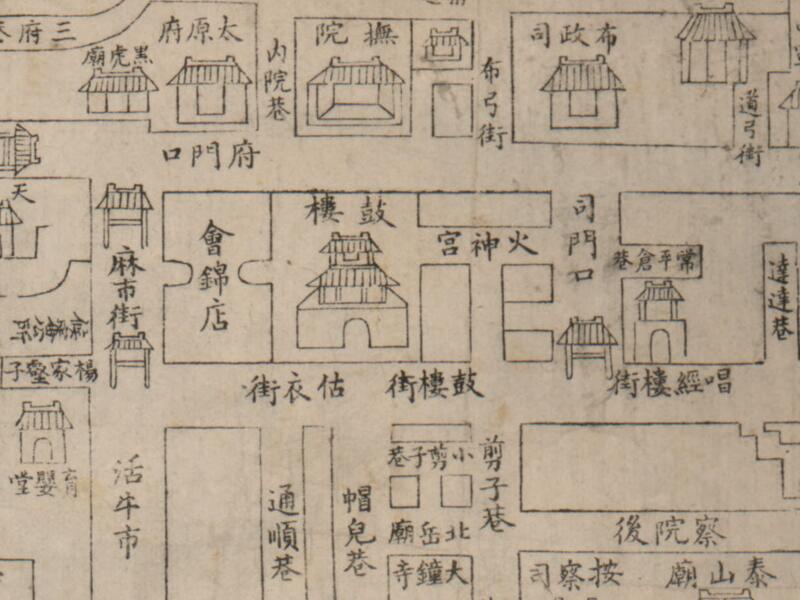 三府巷
太原府
黑虎廟
內院巷
撫院
布弓街
布政司
道弓街
府門口
天
麻市街
會錦店
鼓樓
火神宮
司門口
常平倉巷
達達巷
楊家壑子
估衣街
鼓樓街
唱經樓街
育嬰堂
活牛市
通順巷
帽兒巷
小剪子巷
剪子巷
北岳廟
大鐘寺
察院後
按察司
泰山廟